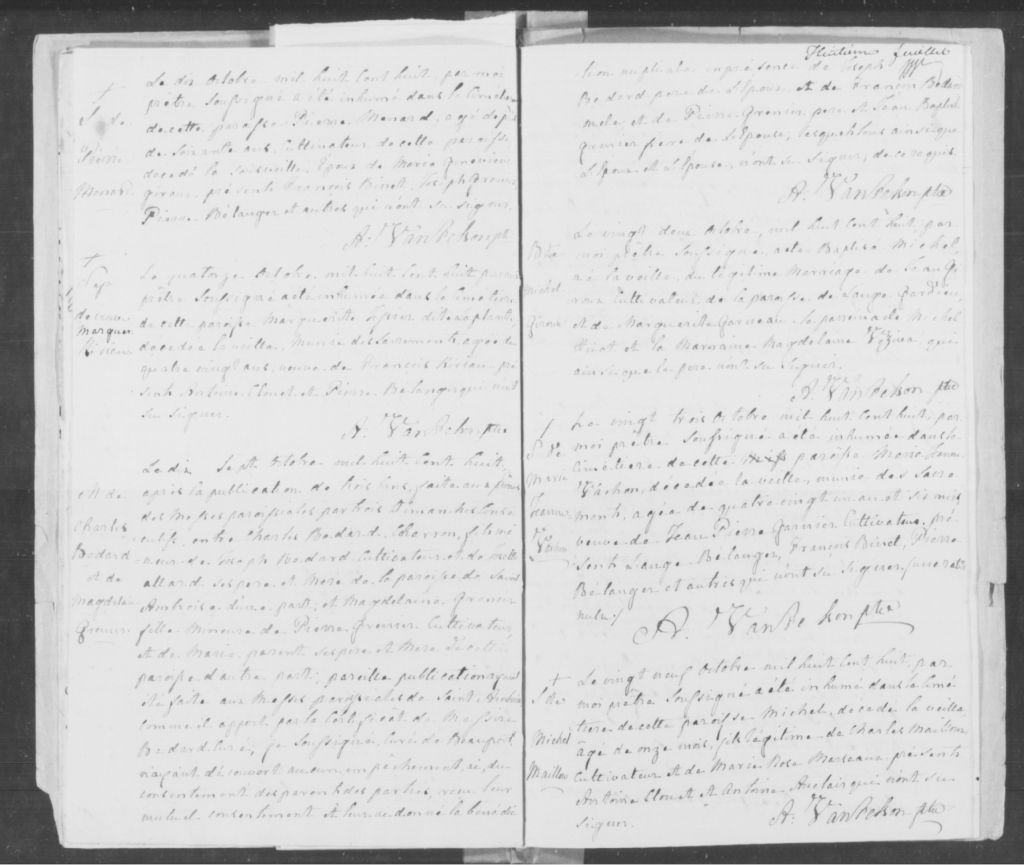 S. de
Pierre
Menard
Le dix Octobre mil huit cent huit, par moi
prêtre Soussigné a été inhumé dans le Cimetière
de cette paroisse Pierre Menard, agé de
de Soixante ans, Cultivateur de cette paroisse,
decedé la Epoux de Marie Genevieve
Giroux. présents François Binet, Joseph Grenier,
Pierre Bélanger et autres qui n'ont su signer.
A: VanDeKon ptre
Sep
de veuve
Marguer.
Le quatorze Octobre mil huit Cent huit par moi
prêtre Soussigné a été inhumée dans le Cimetière
de cette paroisse Marguerite dite
decedée la veille, Munie des Sacrements, agée de
quatre vingt ans, veuve de François
présents Antoine Clouet et Pierre Bélanger qui n'ont
su signer.
A: VanDeKon ptre
M de
Charles
Bedard
et de
Magdelaine
Grenier
Le dix Sept Octobre mil huit Cent huit,
après la publication de trois bans, faite aux prônes
des Messes paroissiales par trois Dimanches Consé
cutifs, entre Charles Bedard, Charron, fils mi
neur de Joseph Bedard Cultivateur et de
allard, ses pere et Mere de la paroisse de Saint
Ambroise d'une part; et Magdelaine Grenier
fille Mineure de Pierre Grenier Cultivateur,
et de Marie parent ses père et Mere de cette
paroisse d'autre part; pareille publication ayant
été faite aux Messes paroissiales de Saint Ambroise
comme il appert par le Certificat de Messire
Bedard Curé; je Soussigné, Curé de Beauport,
n'ayant découvert aucun empêchement, ai, du
consentement des parents des parties, reçu leur
mutuel consentement et leur ai donné la bénédic
feuillet
tion nuptiale en présence de Joseph
Bedard pere de l'Epoux, et de François Bedard
et de Pierre Grenier pere et Jean Baptiste
grenier frere de l'Epouse, lesquels ainsi que
l'Epoux et l'Epouse, n'ont su signer, de ce requis.
A: VanDeKon ptre
Michel
Giroux
Le vingt deux Octobre, mil huit Cent huit, par
moi prêtre Soussigné, a été Baptisé Michel
né la veille, du légitime Marriage de Jean Gi
roux Cultivateur de la paroisse de Lange Gardien,
et de Marguerite Garneau. le parrain a été Michel
et la Marraine Magdelaine Vézina, qui
ainsi que le pere n'ont su signer.
A: VanDeKon ptre
S. de
Marie
Jeanne
Vachon
Le vingt trois Octobre mil huit Cent huit, par
moi prêtre Soussigné a été inhumée dans le
Cimetiere de cette paroisse Marie Jeanne
Vachon, décedée la veille, munie des Sacre
ments, agée de quatre vingt un an et six mois
veuve de Jean Pierre Garnier Cultivateur, pré
sents Lange Bélanger, François Binet, Pierre
Bélanger et autres qui n'ont su signer
nuls/
A. VanDeKon ptre
S. de
Michel
Maillou
Le vingt neuf Octobre mil huit Cent huit, par
moi prêtre Soussigné a été inhumé dans le Cimé
tiere de cette paroisse Michel, decedé la veille
agé de onze mois, fils légitime de Charles Maillou
Cultivateur et de Marie Rose Marceau, présents
Antoine Clouet et Antoine Auclair qui n'ont su
signer.
A: VanDeKon ptre